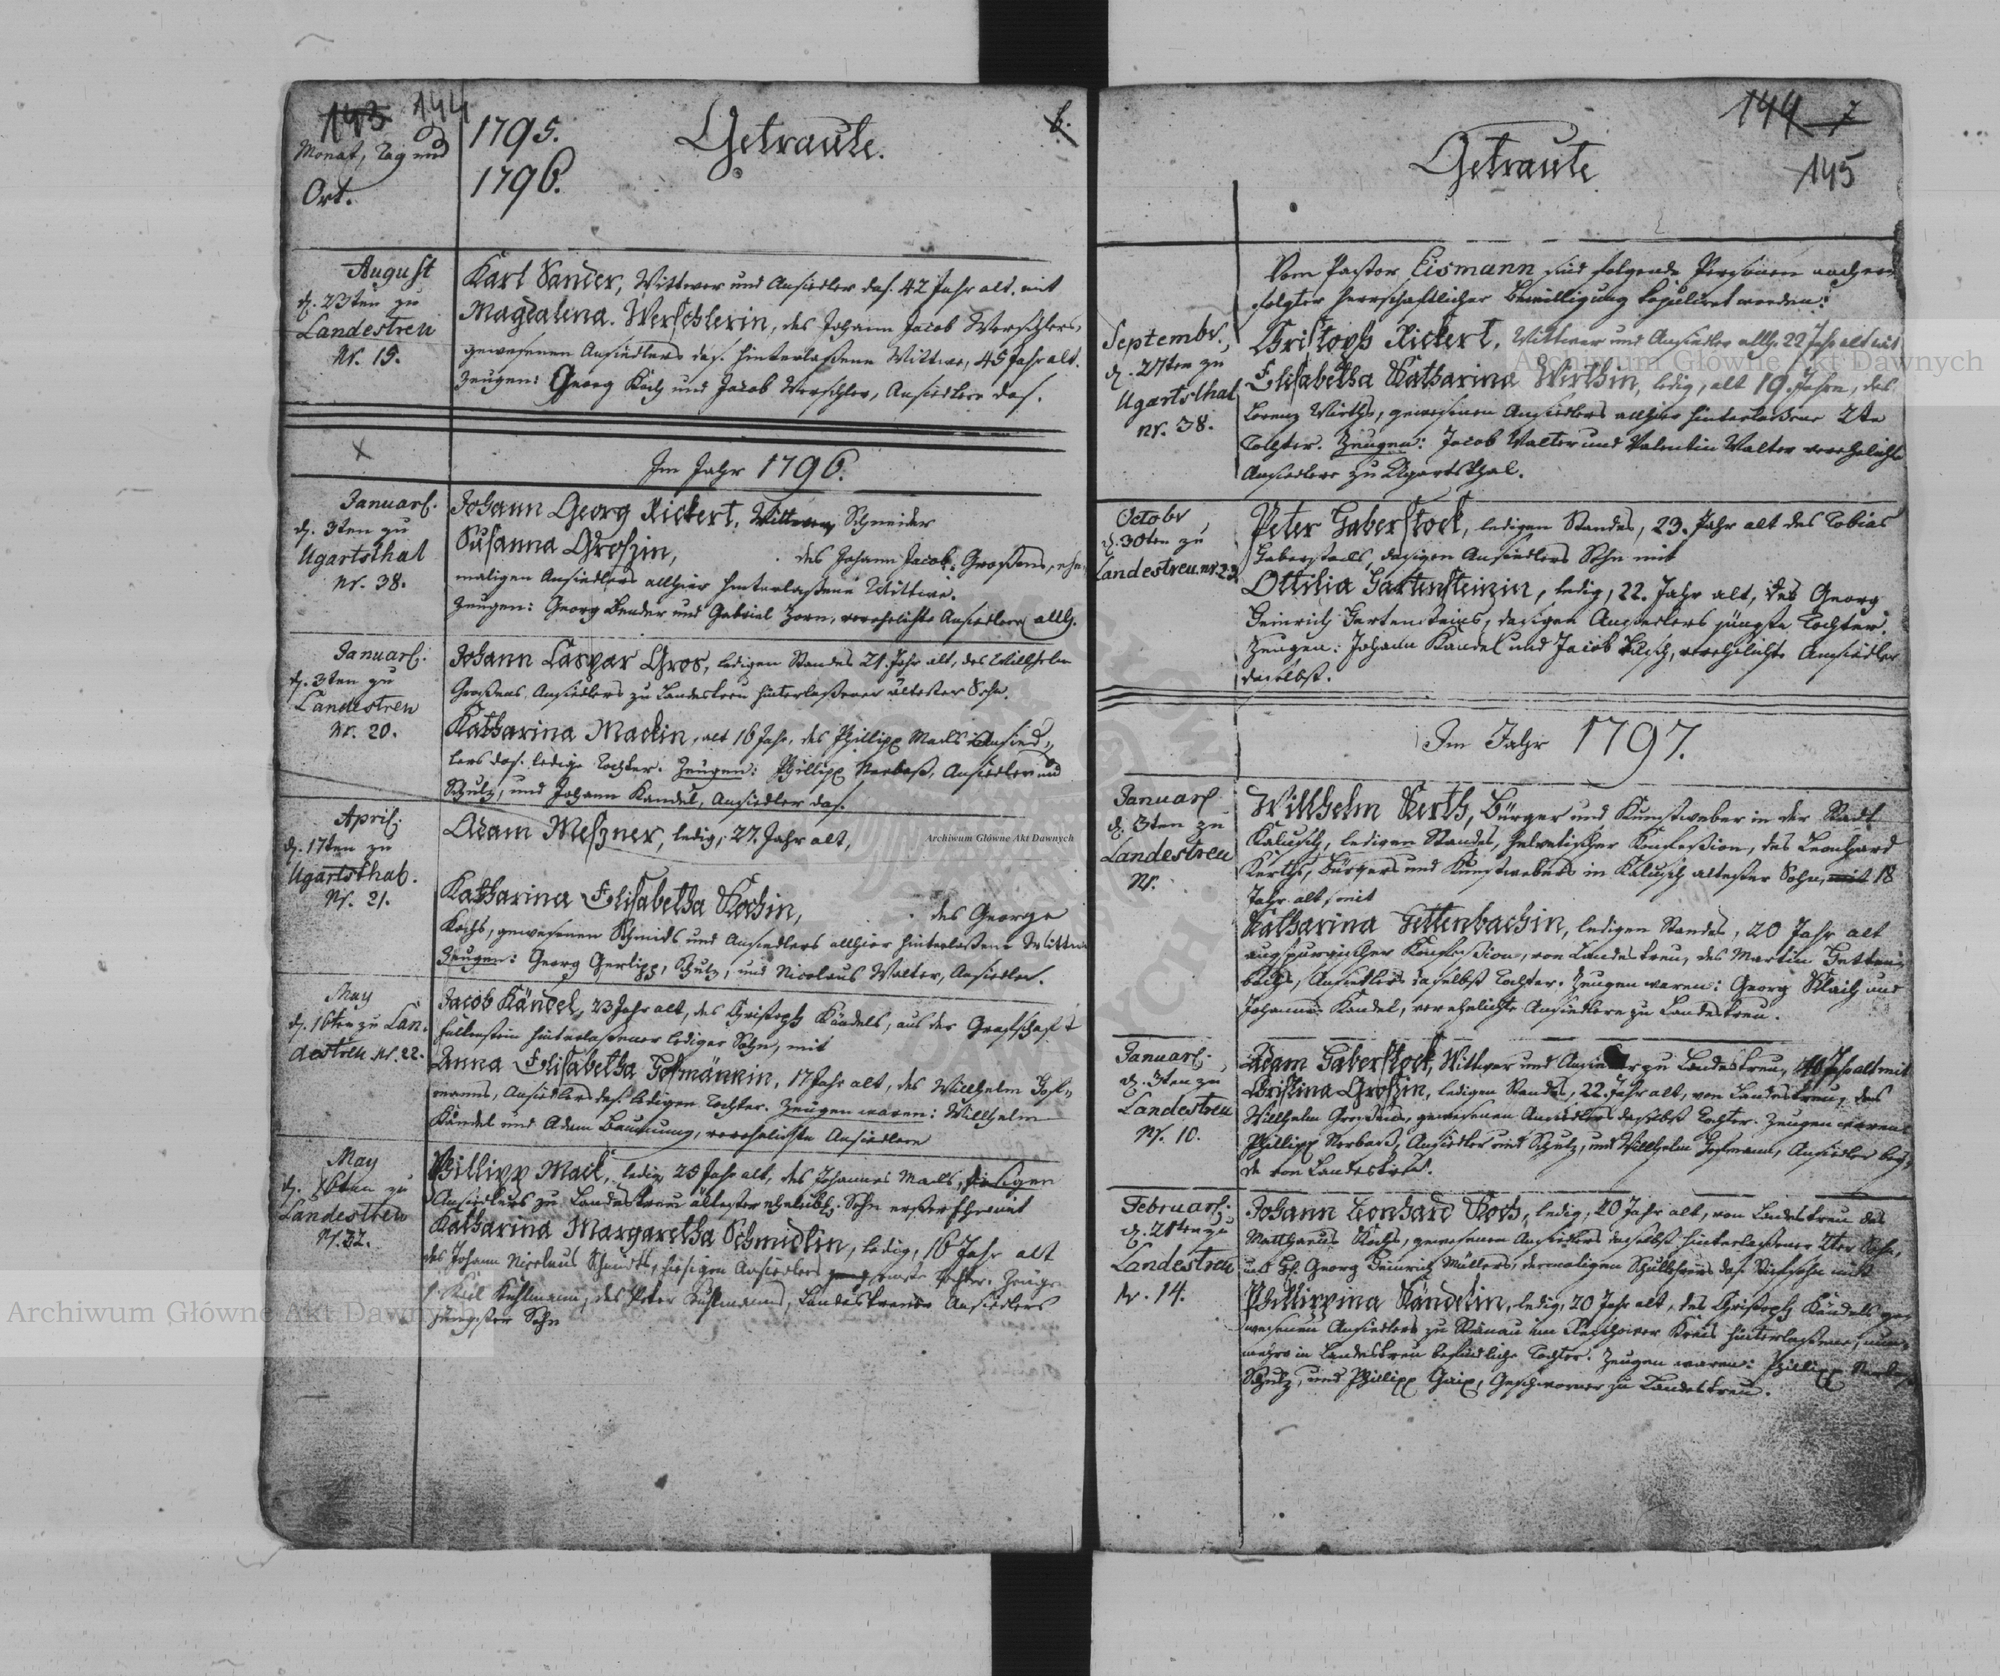 143 144
Monat, Tag und
Ort.
1795.
1796.
Getraute.
6.
August
d. 23ten zu
Landestreu
Nr. 15.
Karl Sander, Wittwer und Ansiedler das. 42 Jahr alt, mit
Magdalena Werschlerin, des Johann Jacob Werschlers,
gewesenen Ansiedlers das. hinterlaßene Wittwe, 45 Jahr alt.
Zeugen: Georg Koch und Jacob Werschler, Ansiedlere das.
X
Im Jahr 1796.
Januari.
d. 3ten zu
Ugartsthal
Nr. 38.
Johann Georg Rickert, Wittwer, Schneider
Susanna Großin, des Johann Jacob Großens, ehe-
maligen Ansiedlers allhier hinterlaßene Wittwe.
Zeugen: Georg Bender und Gabriel Zorn, verehelichte Ansiedlere allh.
Januari.
d. 3ten zu
Landestreu
Nr. 20.
Johann Caspar Gros, ledigen Standes 21. Jahr alt, des Willhelm
Großens Ansiedlers zu Landestreu hinterlaßener ältester Sohn.
Katharina Mackin, alt 16 Jahr, des Phillipp Macks Ansied-
lers das. ledige Tochter. Zeugen: Phillipp Nerbaß, Ansiedler und
Schulz, und Johann Kandel, Ansiedler das.
April.
d. 17ten zu
Ugartsthal.
Nr. 21.
Adam Meßner, ledig, 27. Jahr alt,
Archiwum Główne Akt Dawnych
Katharina Elisabetha Kochin, des George
Kochs, gewesenen Schmids und Ansiedlers allhier hinterlaßene Wittwe
Zeugen: Georg Gerlipp, Schulz, und Nicolaus Walter, Ansiedler.
May
d. 16ten zu Lan-
destreu Nr. 22.
Jacob Kändel, 23 Jahr alt, des Christoph Kändels, aus der Grafschaft
Falkenstein hinterlaßener lediger Sohn, mit
Anna Elisabetha Hofmännin, 17 Jahr alt, des Willhelm Hof-
manns, Ansiedlers das. ledigen Tochter. Zeugen waren: Willhelm
Kändel und Adam Baumung, verehelichte Ansiedlere
May
d. 16ten zu
Landestreu
Nr. 32.
Phillipp Mack, ledig, 25 Jahr alt, des Johannes Macks, hiesigen
Ansiedlers zu Landestreu ältester ehelich. Sohn erster Ehe mit
Katharina Margaretha Schmidtin, ledig, 16 Jahr alt
des Johann Nicolaus Schmidts, hiesigen Ansiedlers Tochter. Zeuge
Kuhlmann, des Peter Kuhlmanns, Landestreuer Ansiedlers
jüngster Sohn
144 7
145
Getraute
Vom Pastor Eismann sind folgende Personen nach er-
folgter herrschaftlicher Bewilligung kopuliret worden:
Septembr.
d. 27ten zu
Ugartsthal
nr. 38.
Christoph Rickert, Wittwer und Ansiedler allh. 22 Jahr alt mit
Elisabetha Katharina Wirthin, ledig, alt 19. Jahre, des
Lorenz Wirths, gewesenen Ansiedlers allhier hinterlaßene 2te
Tochter. Zeugen: Jacob Walter und Valentin Walter verehelichte
Ansiedlere zu Ugartsthal.
Octobr
d. 30ten zu
Landestreu nr. 23
Peter Haberstock, ledigen Standes, 23. Jahr alt des Tobias
Haberstocks, dasigen Ansiedlers Sohn mit
Ottilia Gartensteinin, ledig, 22. Jahr alt, des Georg
Heinrich Gartensteins, dasigen Ansiedlers jüngste Tochter.
Zeugen: Johann Kandel und Jacob Koch, verehelichte Ansiedler
daselbst.
Im Jahr 1797.
Januari
d. 3ten zu
Landestreu
Nr.
Willhelm Kerth, Bürger und Kunstweber in der Stadt
Kalusch, ledigen Standes, helvetischer Konfeßion, des Leonhard
Kerths, Bürgers und Kunstwebers in Kalusch ältester Sohn, mit 18
Jahr alt, mit
Katharina Hettenbachin, ledigen Standes, 20 Jahr alt
augspurgischer Konfeßion, von Landestreu, des Martin Hetten-
bachs, Ansiedlers daselbst Tochter. Zeugen waren: Georg Klaih und
Johannes Kandel, verehelichte Ansiedlere zu Landestreu.
Januari.
d. 3ten zu
Landestreu
Nr. 10.
Adam Haberstock, Wittwer und Ansiedler zu Landestreu, 40 Jahr alt mit
Christina Großin, ledigen Standes, 22. Jahr alt, von Landestreu, des
Willhelm Großens, gewesenen Ansiedlers daselbst Tochter. Zeugen waren
Phillipp Nerbaß, Ansiedler und Schulz, und Willhelm Hofmann, Ansiedler bey-
de von Landestreu.
Februari.
d. 21ten zu
Landestreu
Nr. 14.
Johann Leonhard Koch, ledig, 20 Jahr alt, von Landestreu des
Matthaeus Kochs, gewesenen Ansiedlers daselbst hinterlaßener 2ter Sohn,
und H. Georg Heinrich Müllers, dermaligen Schullehrers das. Stiefsohn mit
Phillippina Kändelin, ledig, 20 Jahr alt, des Christoph Kändels ge-
wesenen Ansiedlers zu Ranau im Kreis hinterlaßene, nun-
mehro in Landestreu befindliche Tochter. Zeugen waren: Phillipp Nerbaß
Schulz, und Phillipp Haix, Geschworner zu Landestreu.
Archiwum Główne Akt Dawnych
Archiwum Główne Akt Dawnych